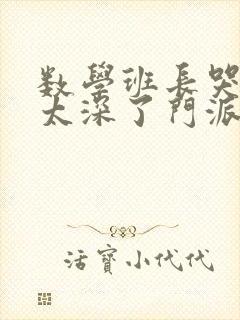 数學班長哭
太深了門派
活寶小代代